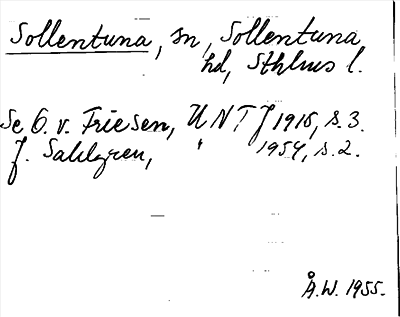 Sollentuna, sn, Sollentuna
hd, Sthlms l.
Se O. v. Friesen, UNT 1916, s. 3.
J. Sahlgren, " 1954, s. 2.
Å.W. 1955.